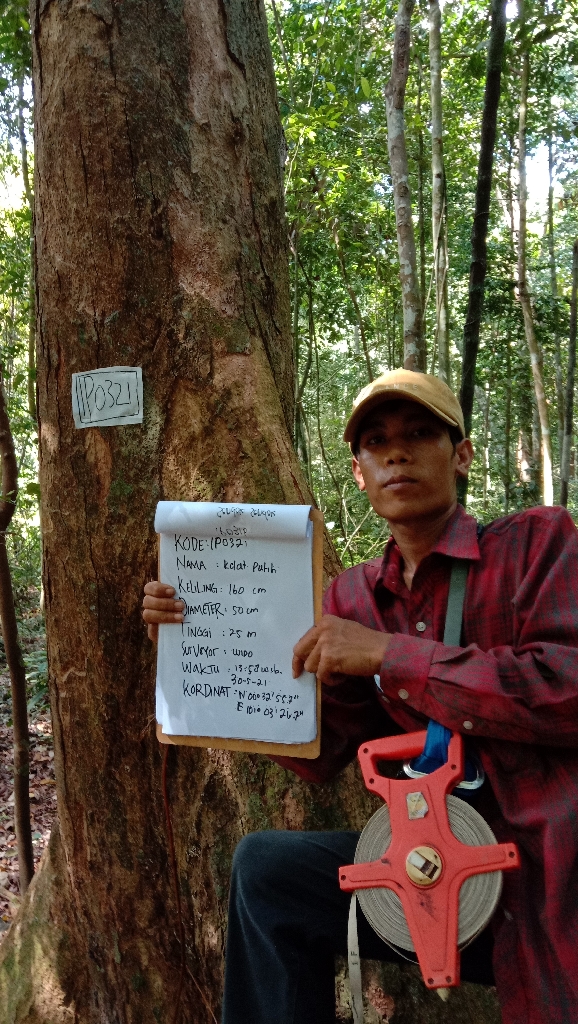 IP0321
KODE : IP0321
NAMA : Kelat Putih
KELILING : 160 cm
DIAMETER : 50 cm
TINGGI : 25 m
SURVEYOR : WIDO
WAKTU : 13:58 WIB
30-5-21
KORDINAT : N 00°32'55.2"
E 101° 03' 26.2"